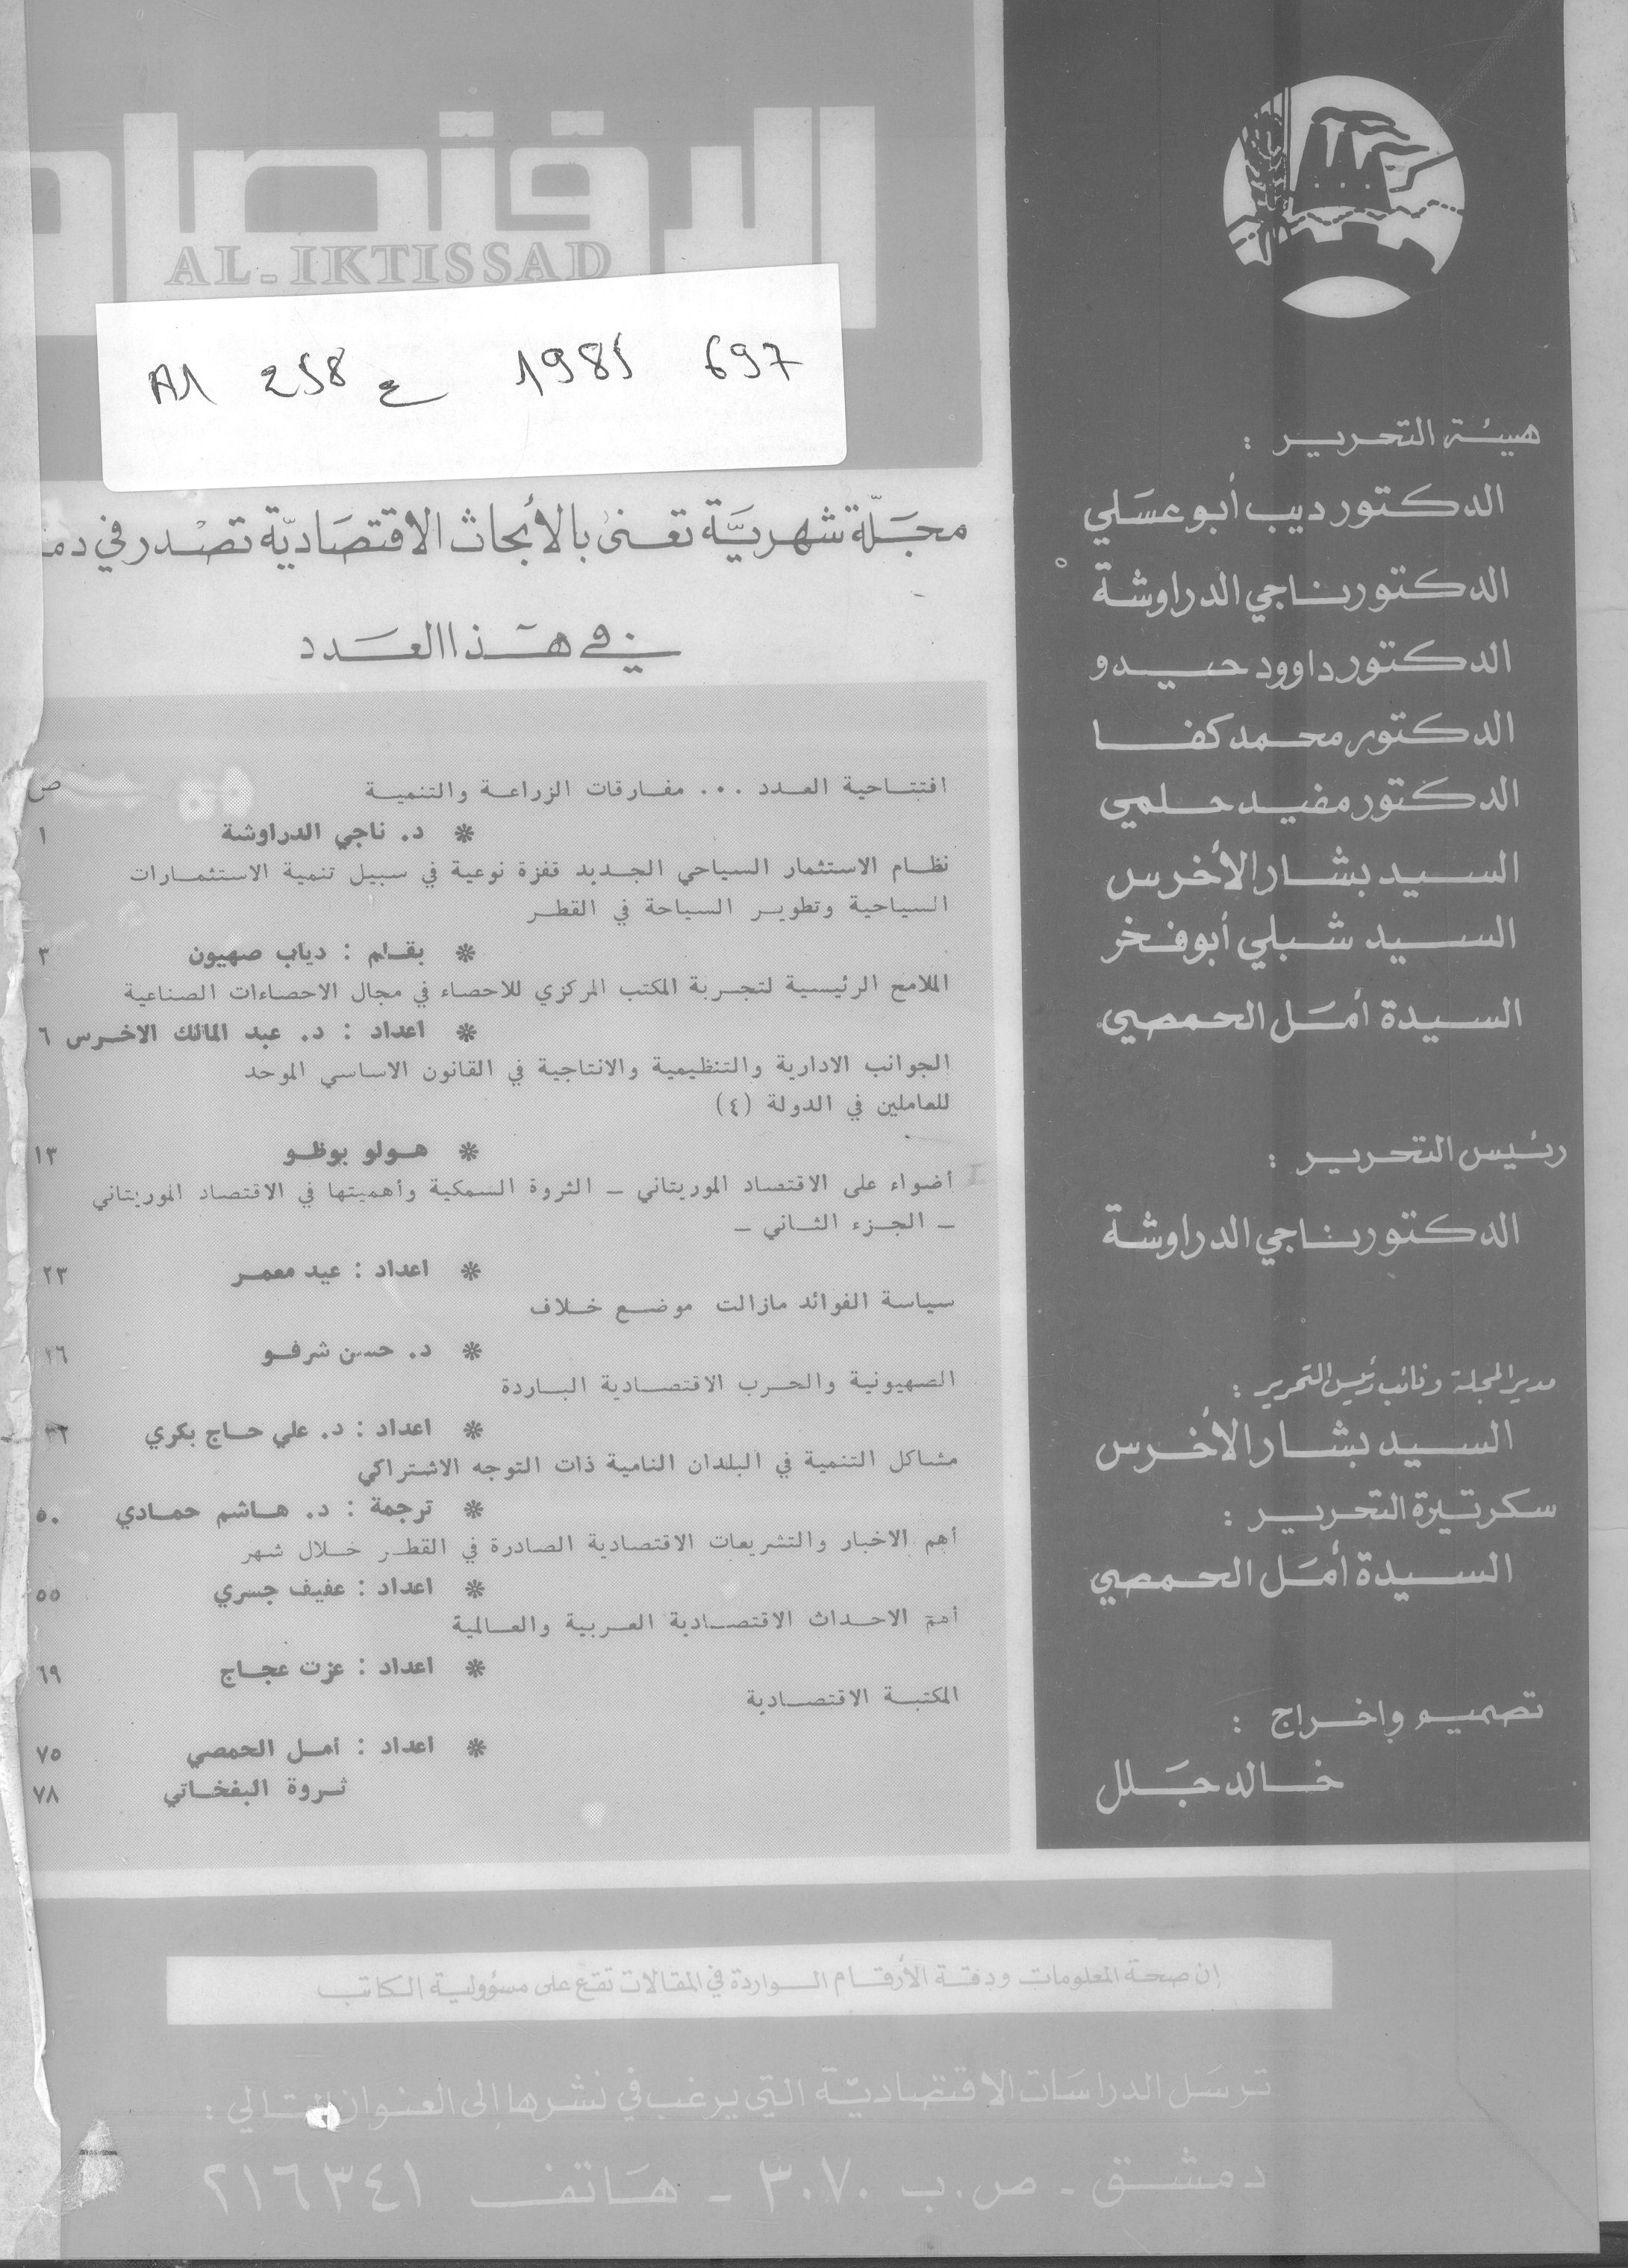 الاقتصاد
AL-IKTISSAD
A1 258 ع 1985 697
مجلة شهرية تعنى بالأبحاث الاقتصادية تصدر في
في هذا العدد
ص
افتتاحية العدد ... مفارقات الزراعة والتنمية
* د. ناجي الدراوشة ١
نظام الاستثمار السياحي الجديد قفزة نوعية في سبيل تنمية الاستثمارات
السياحية وتطوير السياحة في القطر
* بقلم : دياب صهيون ٣
الملامح الرئيسية لتجربة المكتب المركزي للاحصاء في مجال الاحصاءات الصناعية
* اعداد : د. عبد المالك الاخرس ٦
الجوانب الادارية والتنظيمية والانتاجية في القانون الاساسي الموحد
للعاملين في الدولة (٤)
* هولو بوظو ١٣
أضواء على الاقتصاد الموريتاني – الثروة السمكية وأهميتها في الاقتصاد الموريتاني
– الجزء الثاني –
* اعداد : عيد معمر ٢٣
سياسة الفوائد مازالت موضع خلاف
* د. حسن شرفو ٢٦
الصهيونية والحرب الاقتصادية الباردة
* اعداد : د. علي حاج بكري ٣٢
مشاكل التنمية في البلدان النامية ذات التوجه الاشتراكي
* ترجمة : د. هاشم حمادي ٥٠
أهم الاخبار والتشريعات الاقتصادية الصادرة في القطر خلال شهر
* اعداد : عفيف جسري ٥٥
أهم الاحداث الاقتصادية العربية والعالمية
* اعداد : عزت عجاج ٦٩
المكتبة الاقتصادية
* اعداد : أمل الحمصي ٧٥
ثروة البفخاتي ٧٨
هيئة التحرير :
الدكتور ديب أبو عسلي
الدكتور ناجي الدراوشة
الدكتور داوود حيدو
الدكتور محمد كفا
الدكتور مفيد حلمي
السيد بشار الأخرس
السيد شبلي أبو فخر
السيدة أمل الحمصي
رئيس التحرير :
الدكتور ناجي الدراوشة
مدير المجلة ونائب رئيس التحرير :
السيد بشار الأخرس
سكرتيرة التحرير :
السيدة أمل الحمصي
تصميم وإخراج :
خالد جلل
إن صحة المعلومات ودقة الأرقام الواردة في المقالات تقع على مسؤولية الكاتب
ترسل الدراسات الاقتصادية التي يرغب في نشرها إلى العنوان التالي :
دمشق - ص.ب ٣٠٧٠ - هاتف ٢١٦٣٤١